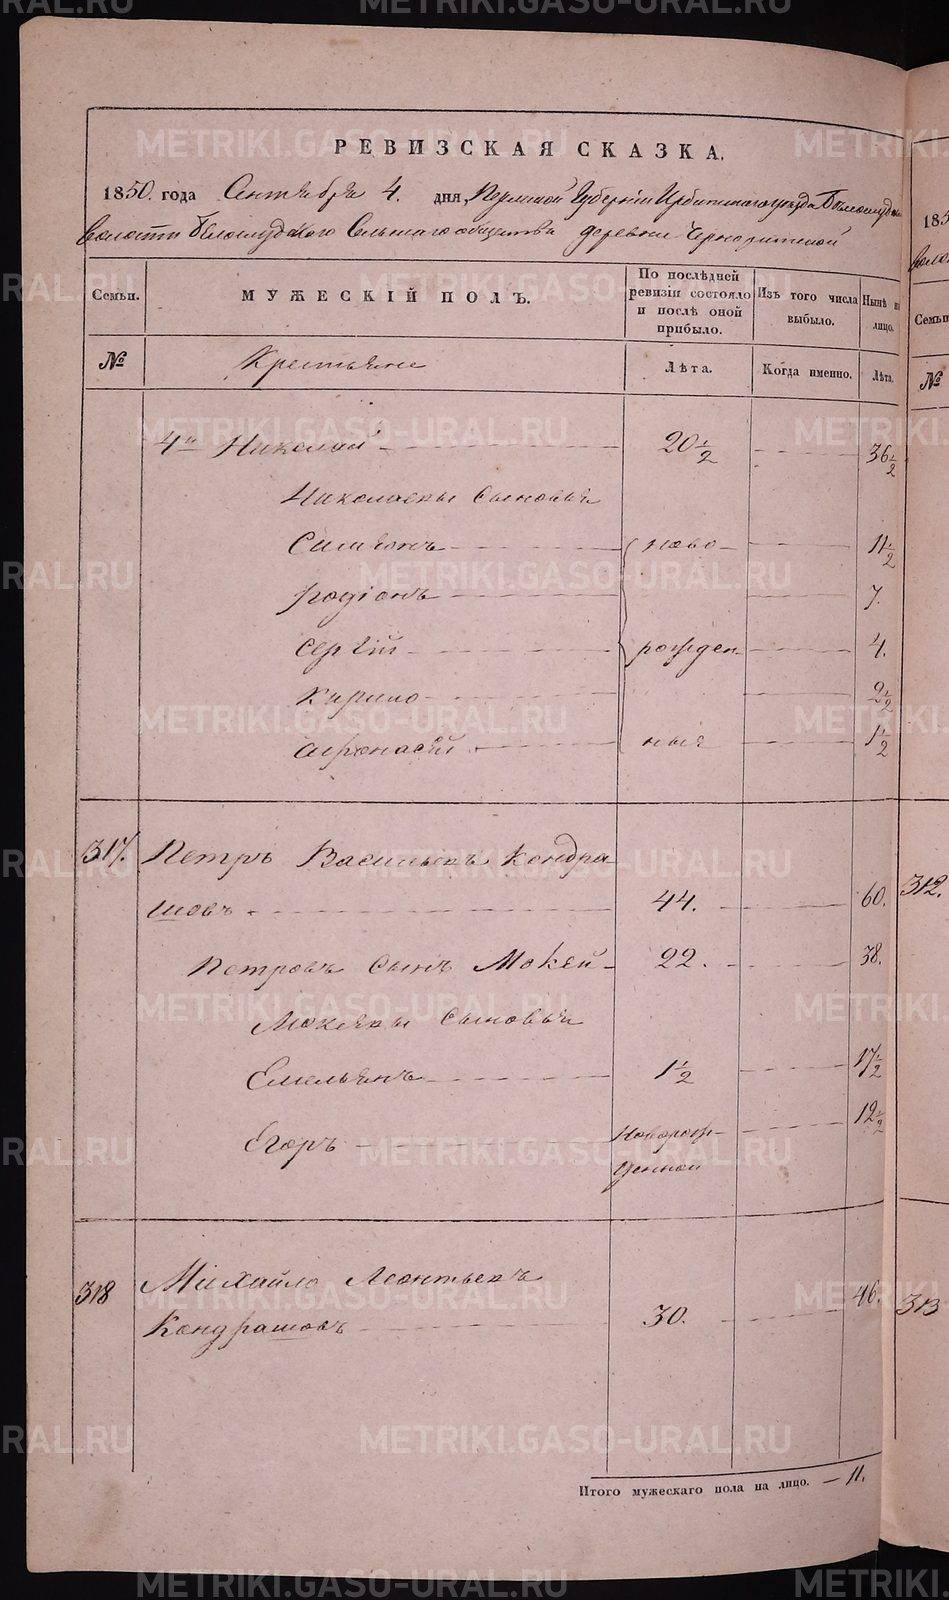 METRIKI.GASO-URAL.RU
РЕВИЗСКАЯ СКАЗКА.
1850. года Сентября 4. дня, Пермской Губернiи Ирбитскаго уезда Белослудской
волости Белослудскаго Сельскаго общества деревни
Семьи. МУЖЕСКІЙ ПОЛЪ. По послѣдней ревизіи состояло и послѣ оной прибыло. Изъ того числа выбыло. Нынѣ на лицо.
№ Крестьяне Лѣта. Когда именно. Лѣта.
4й Николай 20 1/2 36 1/2
Николаевы сыновья
Симеонъ ново 11 1/2
Родіонъ 7.
Сергій рожден 4.
Кирило ные 2 1/2
Афонасій 1 1/2
317. Петръ Васильевъ Кондра
шовъ 44. 60.
Петровъ сынъ Мокей 22. 38.
Мокеевы сыновья
Емельянъ 1 1/2 17 1/2
Егоръ Новорож- 12 1/2
денной
318 Михайло Леонтьевъ
Кондрашовъ 30. 46.
Итого мужескаго пола на лицо. 11.
185
воло
Семьи
№
312.
313